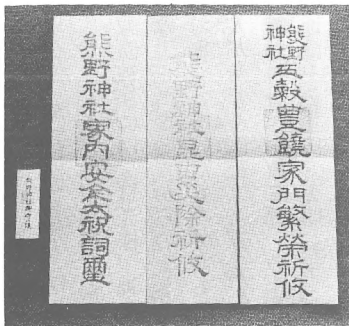 熊野神社五穀豊饒家門繁榮祈攸
熊野神社昆虫災除祈攸
熊野神社家内安全太祝詞璽